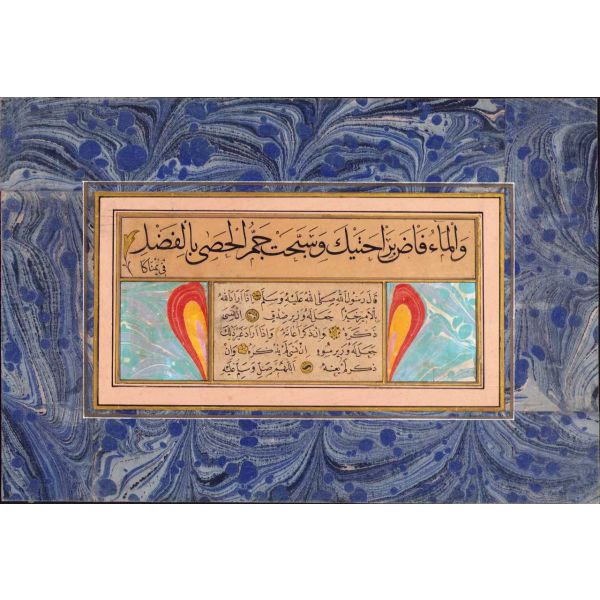 والماء فاض براحتيك وسبحت جم الحصى بالفضل
في يمناكا
قال رسول الله صلى الله عليه وسلم اذا اراد الله
بالامير خيرا جعل له وزير صدق ان نسي
ذكره وان ذكر اعانه واذا اراد غير ذلك
جعل له وزير سوء ان نسي لم يذكره وان
ذكر لم يعنه اللهم صل وسلم عليه